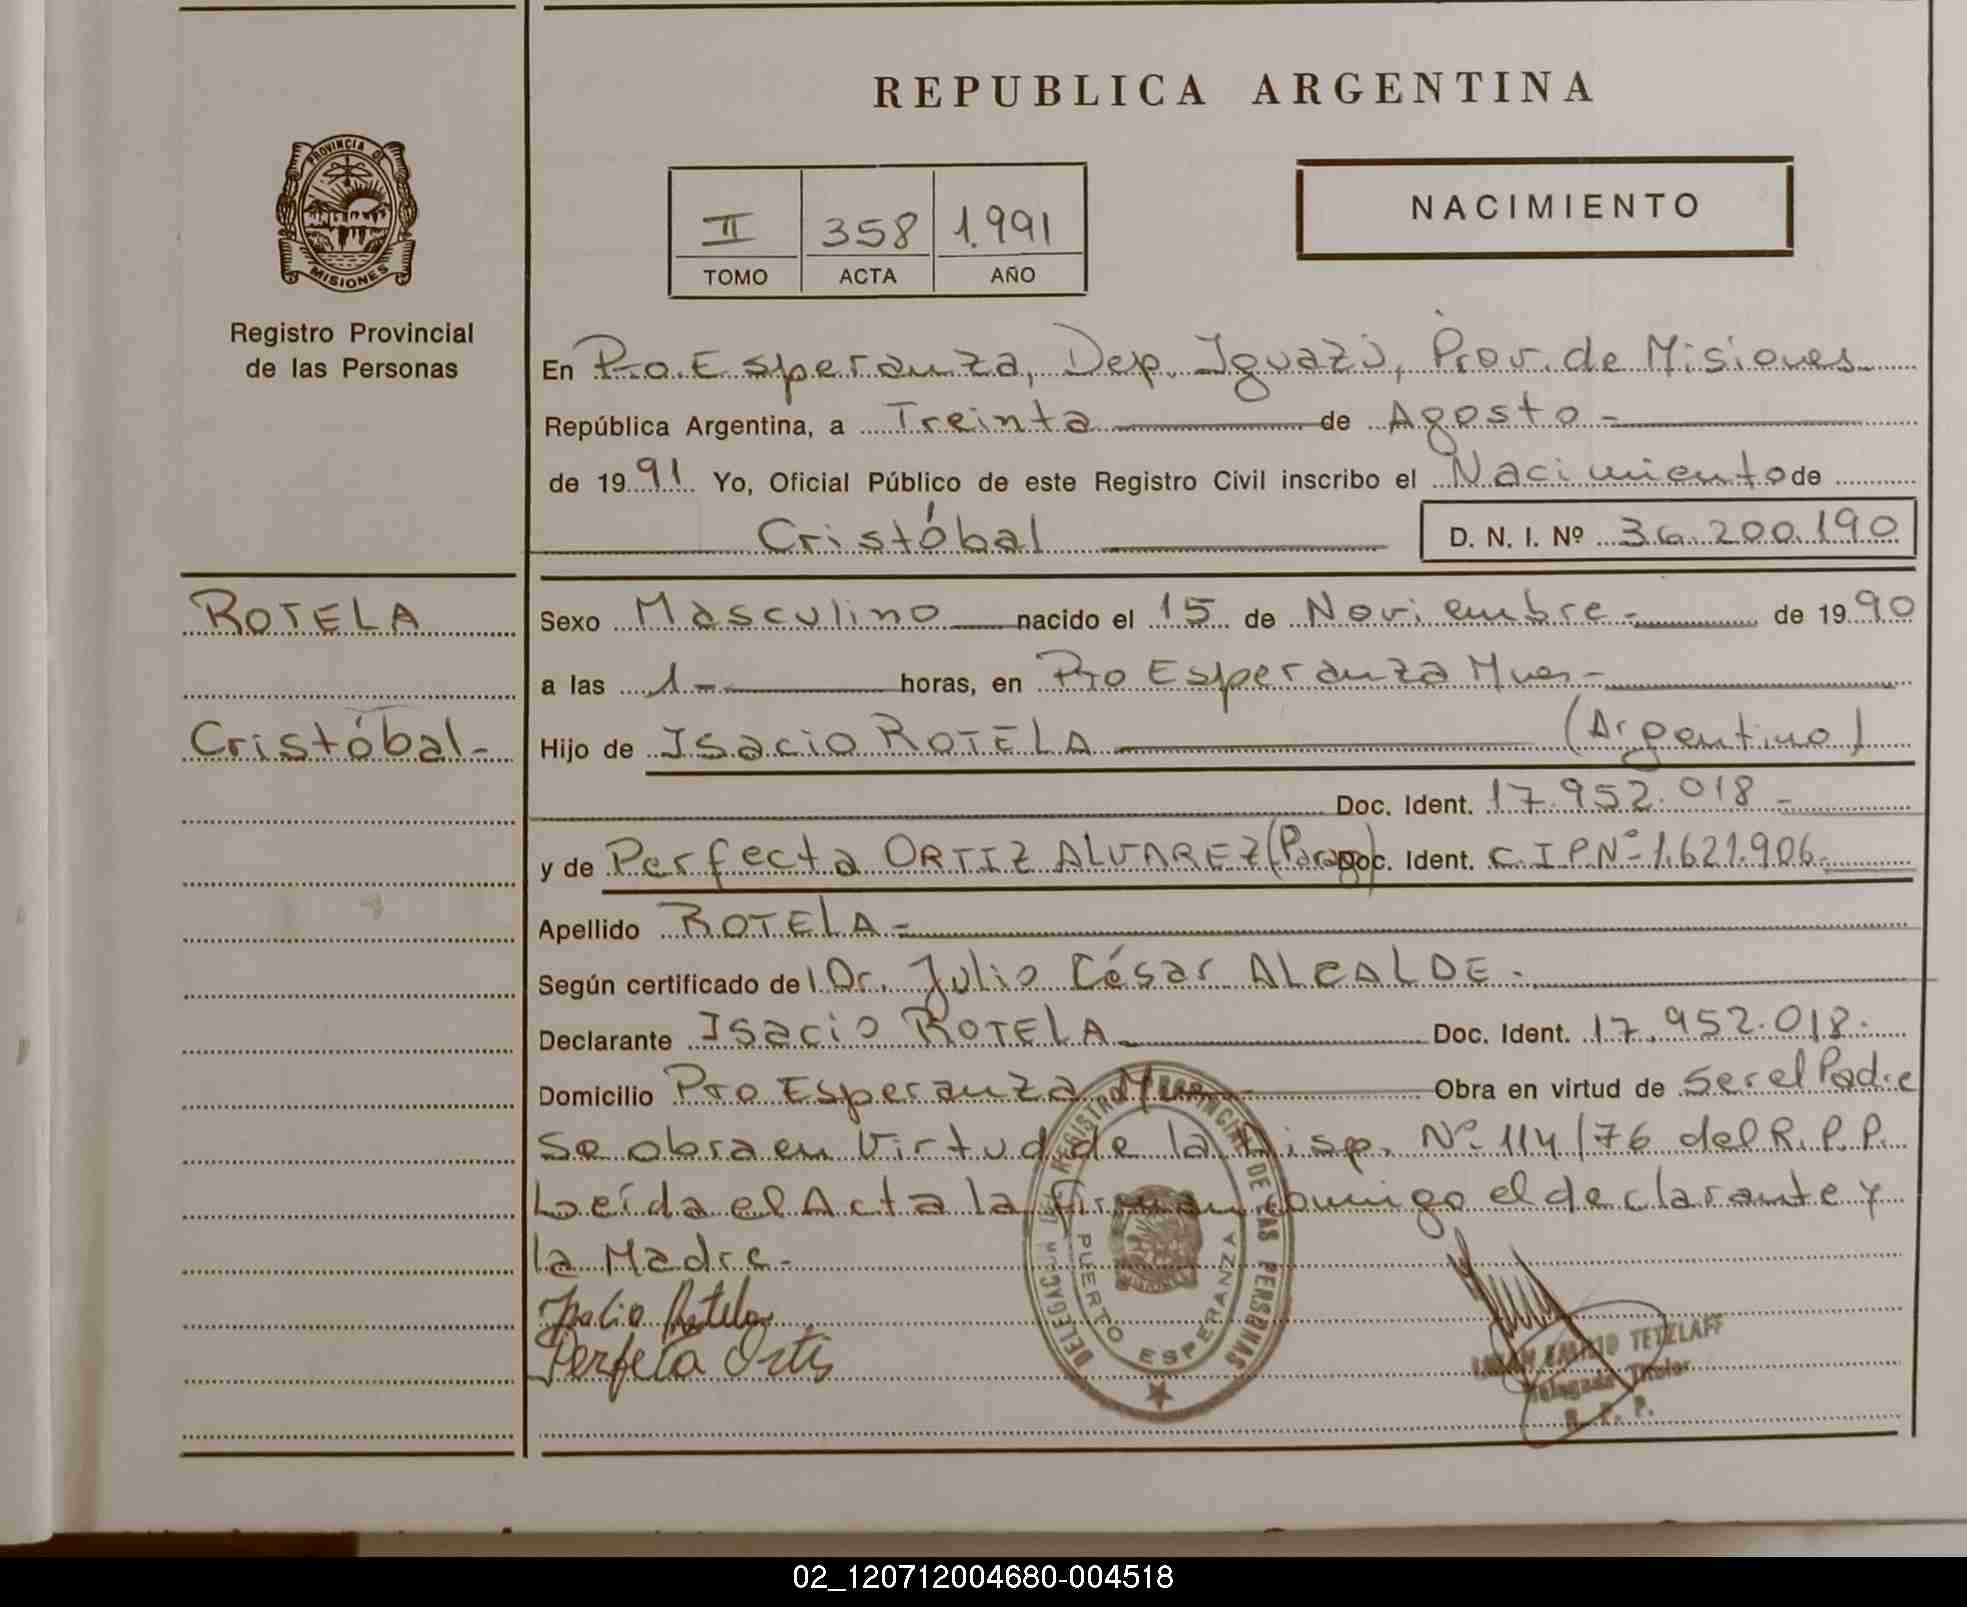 REPUBLICA ARGENTINA
PROVINCIA DE
MISIONES
Registro Provincial
de las Personas
II 358 1.991
TOMO ACTA AÑO
NACIMIENTO
En Pto. Esperanza, Dep. Iguazú, Prov. de Misiones
República Argentina, a Treinta de Agosto-
de 1991 Yo, Oficial Público de este Registro Civil inscribo el Nacimiento de
Cristóbal D. N. I. Nº 36.200.190
ROTELA
Cristóbal-
Sexo Masculino nacido el 15 de Noviembre- de 1990
a las 1- horas, en Pto Esperanza Mnes-
Hijo de Isacio ROTELA (Argentino)
Doc. Ident. 17.952.018-
y de Perfecta ORTIZ ALVAREZ (Parag) Doc. Ident. C.I.P.Nº 1.621.906-
Apellido ROTELA-
Según certificado de l Dr. Julio César ALCALDE-
Declarante Isacio ROTELA Doc. Ident. 17.952.018.
Domicilio Pto Esperanza Mnes- Obra en virtud de Ser el Padre
Se obra en Virtud de la Disp. Nº 114/76 del R.P.P.
Leída el Acta la firman conmigo el declarante y
la Madre-
Isacio Rotela
Perfeta Ortis
DELEGACION DEL REGISTRO PROVINCIAL DE LAS PERSONAS
PUERTO ESPERANZA
EMILIO TETZLAFF
Delegado Titular
R. P. P.
02_120712004680-004518